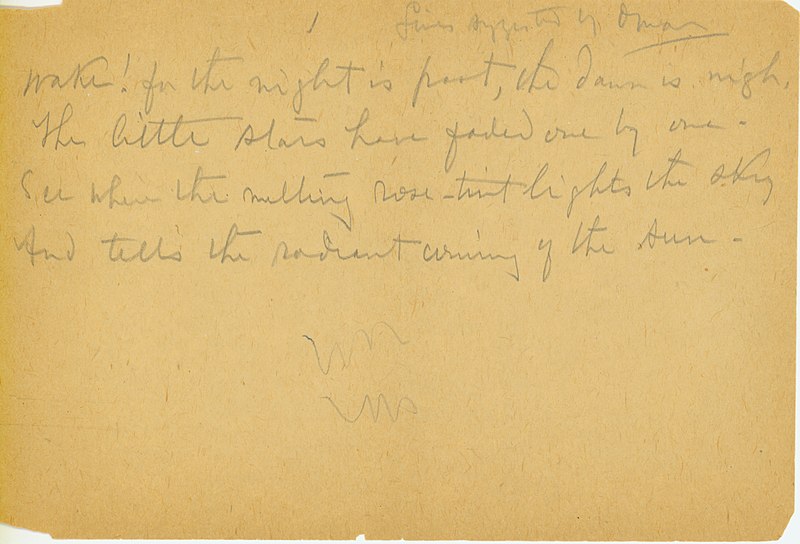 1 Lines suggested by Omar
Wake! for the night is past, the dawn is nigh.
The little stars have faded one by one -
See where the melting rose-tint lights the sky
And tells the radiant coming of the sun -